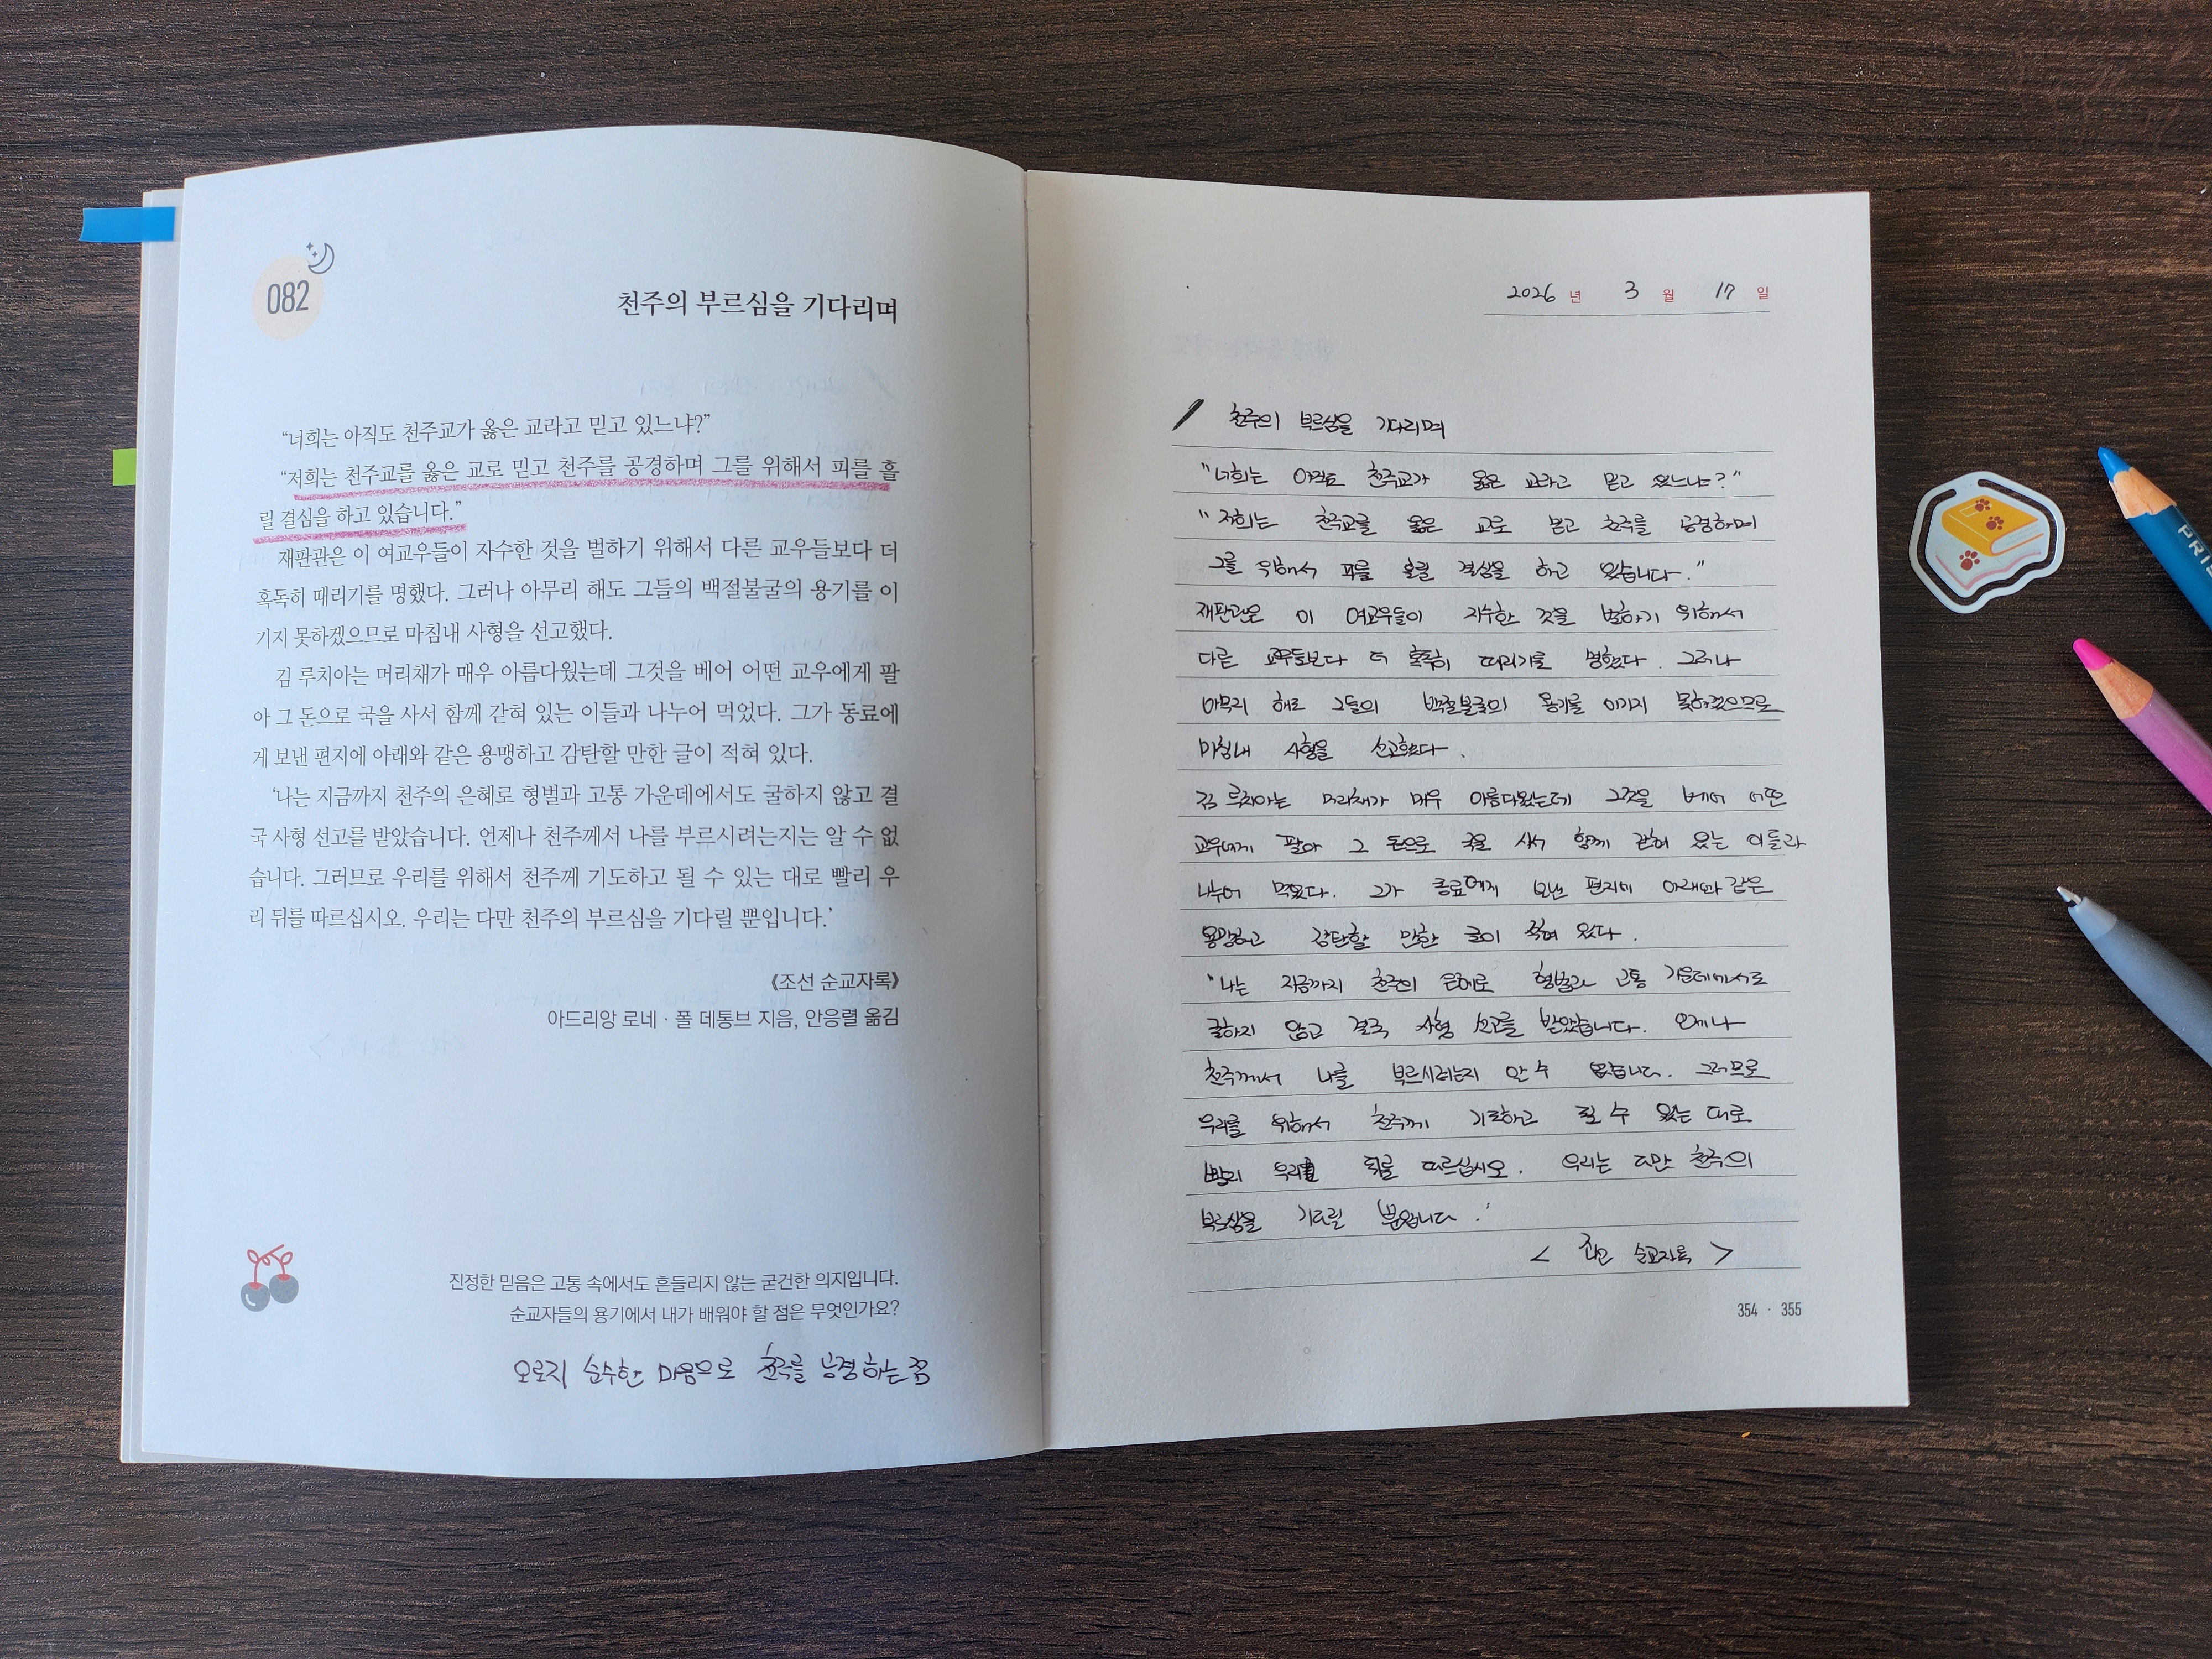 082
천주의 부르심을 기다리며
“너희는 아직도 천주교가 옳은 교라고 믿고 있느냐?”
“저희는 천주교를 옳은 교로 믿고 천주를 공경하며 그를 위해서 피를 흘
릴 결심을 하고 있습니다.”
재판관은 이 여교우들이 자수한 것을 벌하기 위해서 다른 교우들보다 더
혹독히 때리기를 명했다. 그러나 아무리 해도 그들의 백절불굴의 용기를 이
기지 못하겠으므로 마침내 사형을 선고했다.
김 루치아는 머리채가 매우 아름다웠는데 그것을 베어 어떤 교우에게 팔
아 그 돈으로 국을 사서 함께 갇혀 있는 이들과 나누어 먹었다. 그가 동료에
게 보낸 편지에 아래와 같은 용맹하고 감탄할 만한 글이 적혀 있다.
‘나는 지금까지 천주의 은혜로 형벌과 고통 가운데에서도 굴하지 않고 결
국 사형 선고를 받았습니다. 언제나 천주께서 나를 부르시려는지는 알 수 없
습니다. 그러므로 우리를 위해서 천주께 기도하고 될 수 있는 대로 빨리 우
리 뒤를 따르십시오. 우리는 다만 천주의 부르심을 기다릴 뿐입니다.’
《조선 순교자록》
아드리앙 로네 · 폴 데통브 지음, 안응렬 옮김
진정한 믿음은 고통 속에서도 흔들리지 않는 굳건한 의지입니다.
순교자들의 용기에서 내가 배워야 할 점은 무엇인가요?
오로지 순수한 마음으로 천주를 공경하는 점
2026 년 3 월 17 일
천주의 부르심을 기다리며
“너희는 아직도 천주교가 옳은 교라고 믿고 있느냐?”
“저희는 천주교를 옳은 교로 믿고 천주를 공경하며
그를 위해서 피를 흘릴 결심을 하고 있습니다.”
재판관은 이 여교우들이 자수한 것을 벌하기 위해서
다른 교우들보다 더 혹독히 때리기를 명했다. 그러나
아무리 해도 그들의 백절불굴의 용기를 이기지 못하겠으므로
마침내 사형을 선고했다.
김 루치아는 머리채가 매우 아름다웠는데 그것을 베어 어떤
교우에게 팔아 그 돈으로 국을 사서 함께 갇혀 있는 이들과
나누어 먹었다. 그가 동료에게 보낸 편지에 아래와 같은
용맹하고 감탄할 만한 글이 적혀 있다.
‘나는 지금까지 천주의 은혜로 형벌과 고통 가운데에서도
굴하지 않고 결국 사형 선고를 받았습니다. 언제나
천주께서 나를 부르시려는지 알 수 없습니다. 그러므로
우리를 위해서 천주께 기도하고 될 수 있는 대로
빨리 우리 뒤를 따르십시오. 우리는 다만 천주의
부르심을 기다릴 뿐입니다.’
< 조선 순교자록 >
354 · 355